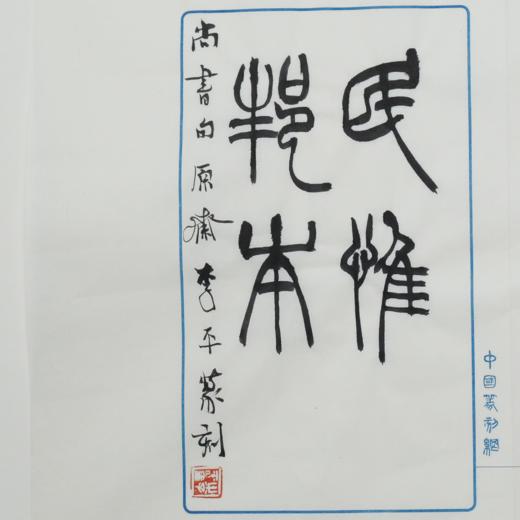 民惟
邦本
尚書句原齋李平篆刻
中國篆刻網